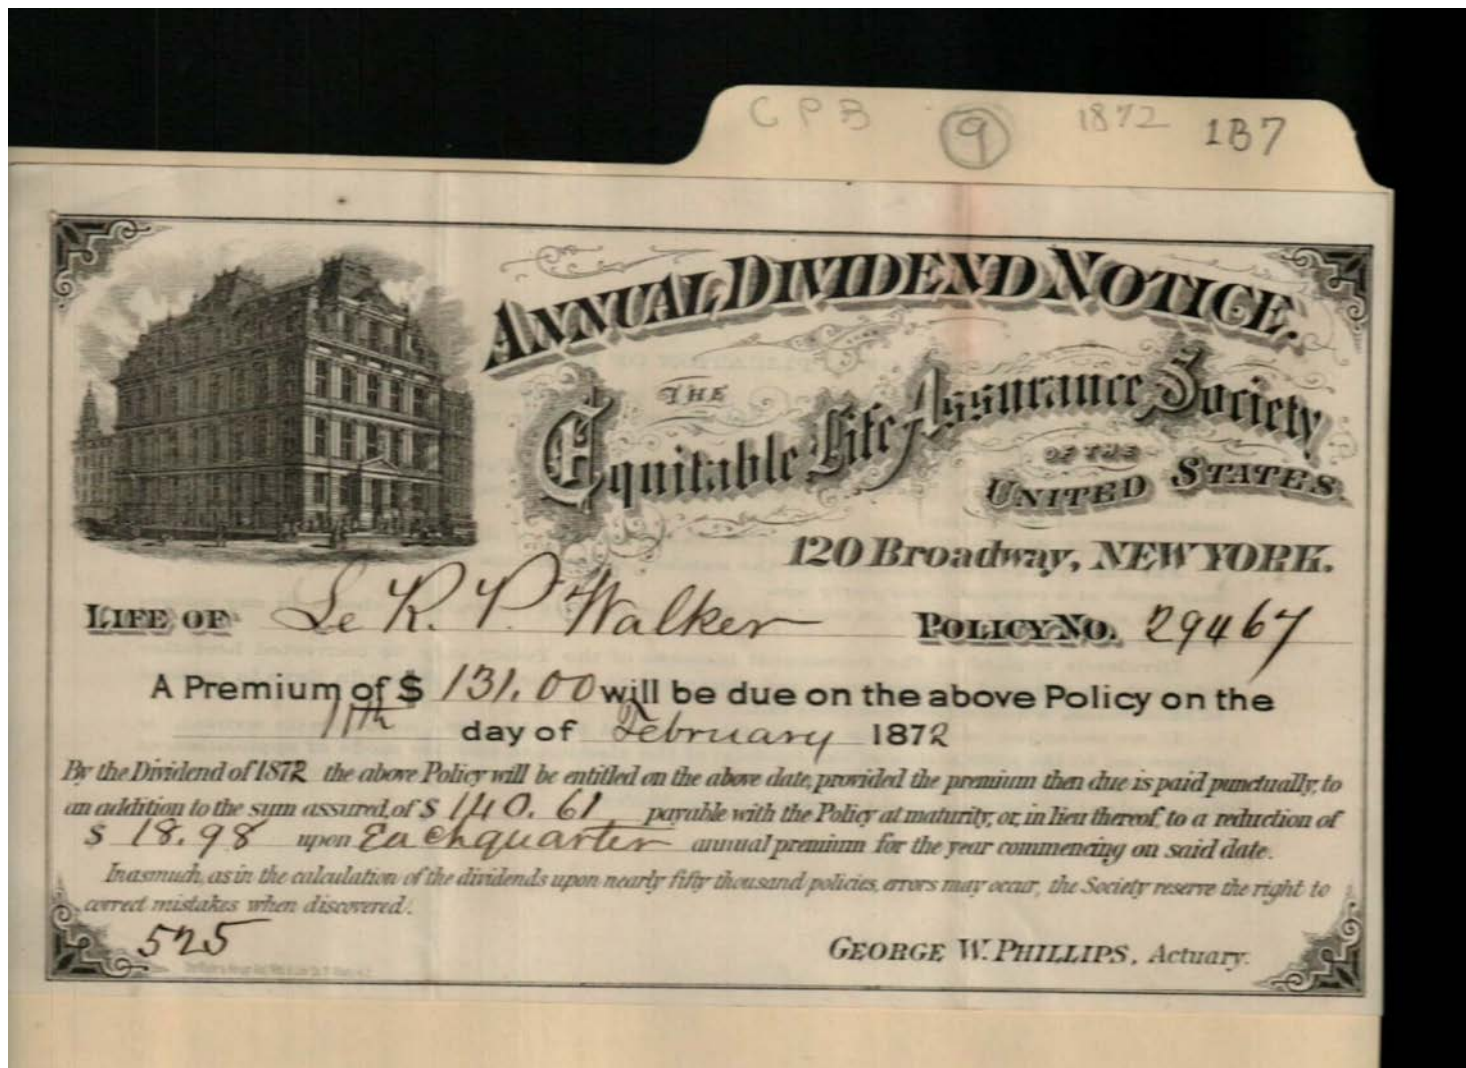 CPB 9 1872 1B7
ANNUAL DIVIDEND NOTICE.
THE
Equitable Life Assurance Society
OF THE
UNITED STATES
120 Broadway, NEW YORK.
LIFE OF Le R. P. Walker POLICY NO. 29467
A Premium of $ 131.00 will be due on the above Policy on the
11th day of February 1872
By the Dividend of 1872 the above Policy will be entitled on the above date, provided the premium then due is paid punctually, to
an addition to the sum assured, of $ 140.61 payable with the Policy at maturity, or, in lieu thereof, to a reduction of
$ 18.98 upon Each quarter annual premium for the year commencing on said date.
Inasmuch, as in the calculation of the dividends upon nearly fifty thousand policies, errors may occur, the Society reserve the right to
correct mistakes when discovered.
525
GEORGE W. PHILLIPS, Actuary.